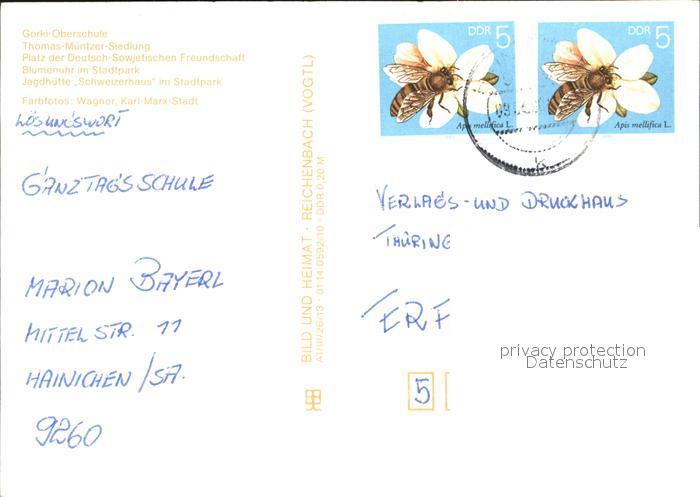 Gorki-Oberschule
Thomas-Müntzer-Siedlung
Platz der Deutsch-Sowjetischen Freundschaft
Blumenuhr im Stadtpark
Jagdhütte „Schweizerhaus" im Stadtpark
Farbfotos: Wagner, Karl-Marx-Stadt
LÖSUNGSWORT
GANZTAGSSCHULE
MARION BAYERL
MITTELSTR. 11
HAINICHEN /SA.
9260
BILD UND HEIMAT · REICHENBACH (VOGTL)
A1/III/26/13 · 01 14 0592/10 · DDR 0,20 M
DDR 5
Apis mellifica L.
DDR 5
Apis mellifica L.
VERLAGS- UND DRUCKHAUS
THÜRING
ERF
5
privacy protection
Datenschutz